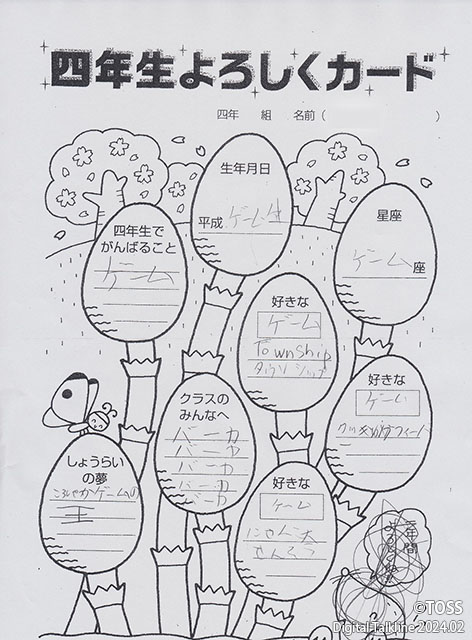 四年生よろしくカード
四年 組 名前( )
生年月日
平成 ゲーム生
星座
ゲーム座
四年生で
がんばること
ゲーム
好きな
ゲーム
Township
タウンシップ
好きな
ゲーム
クラスの
みんなへ
バーカ
バーカ
バーカ
バーカ
バーカ
しょうらい
の夢
王
好きな
ゲーム
にゃんこ大
せんそう
一年間
よろしくね!!
©TOSS
Digital TalkLine 2024.02